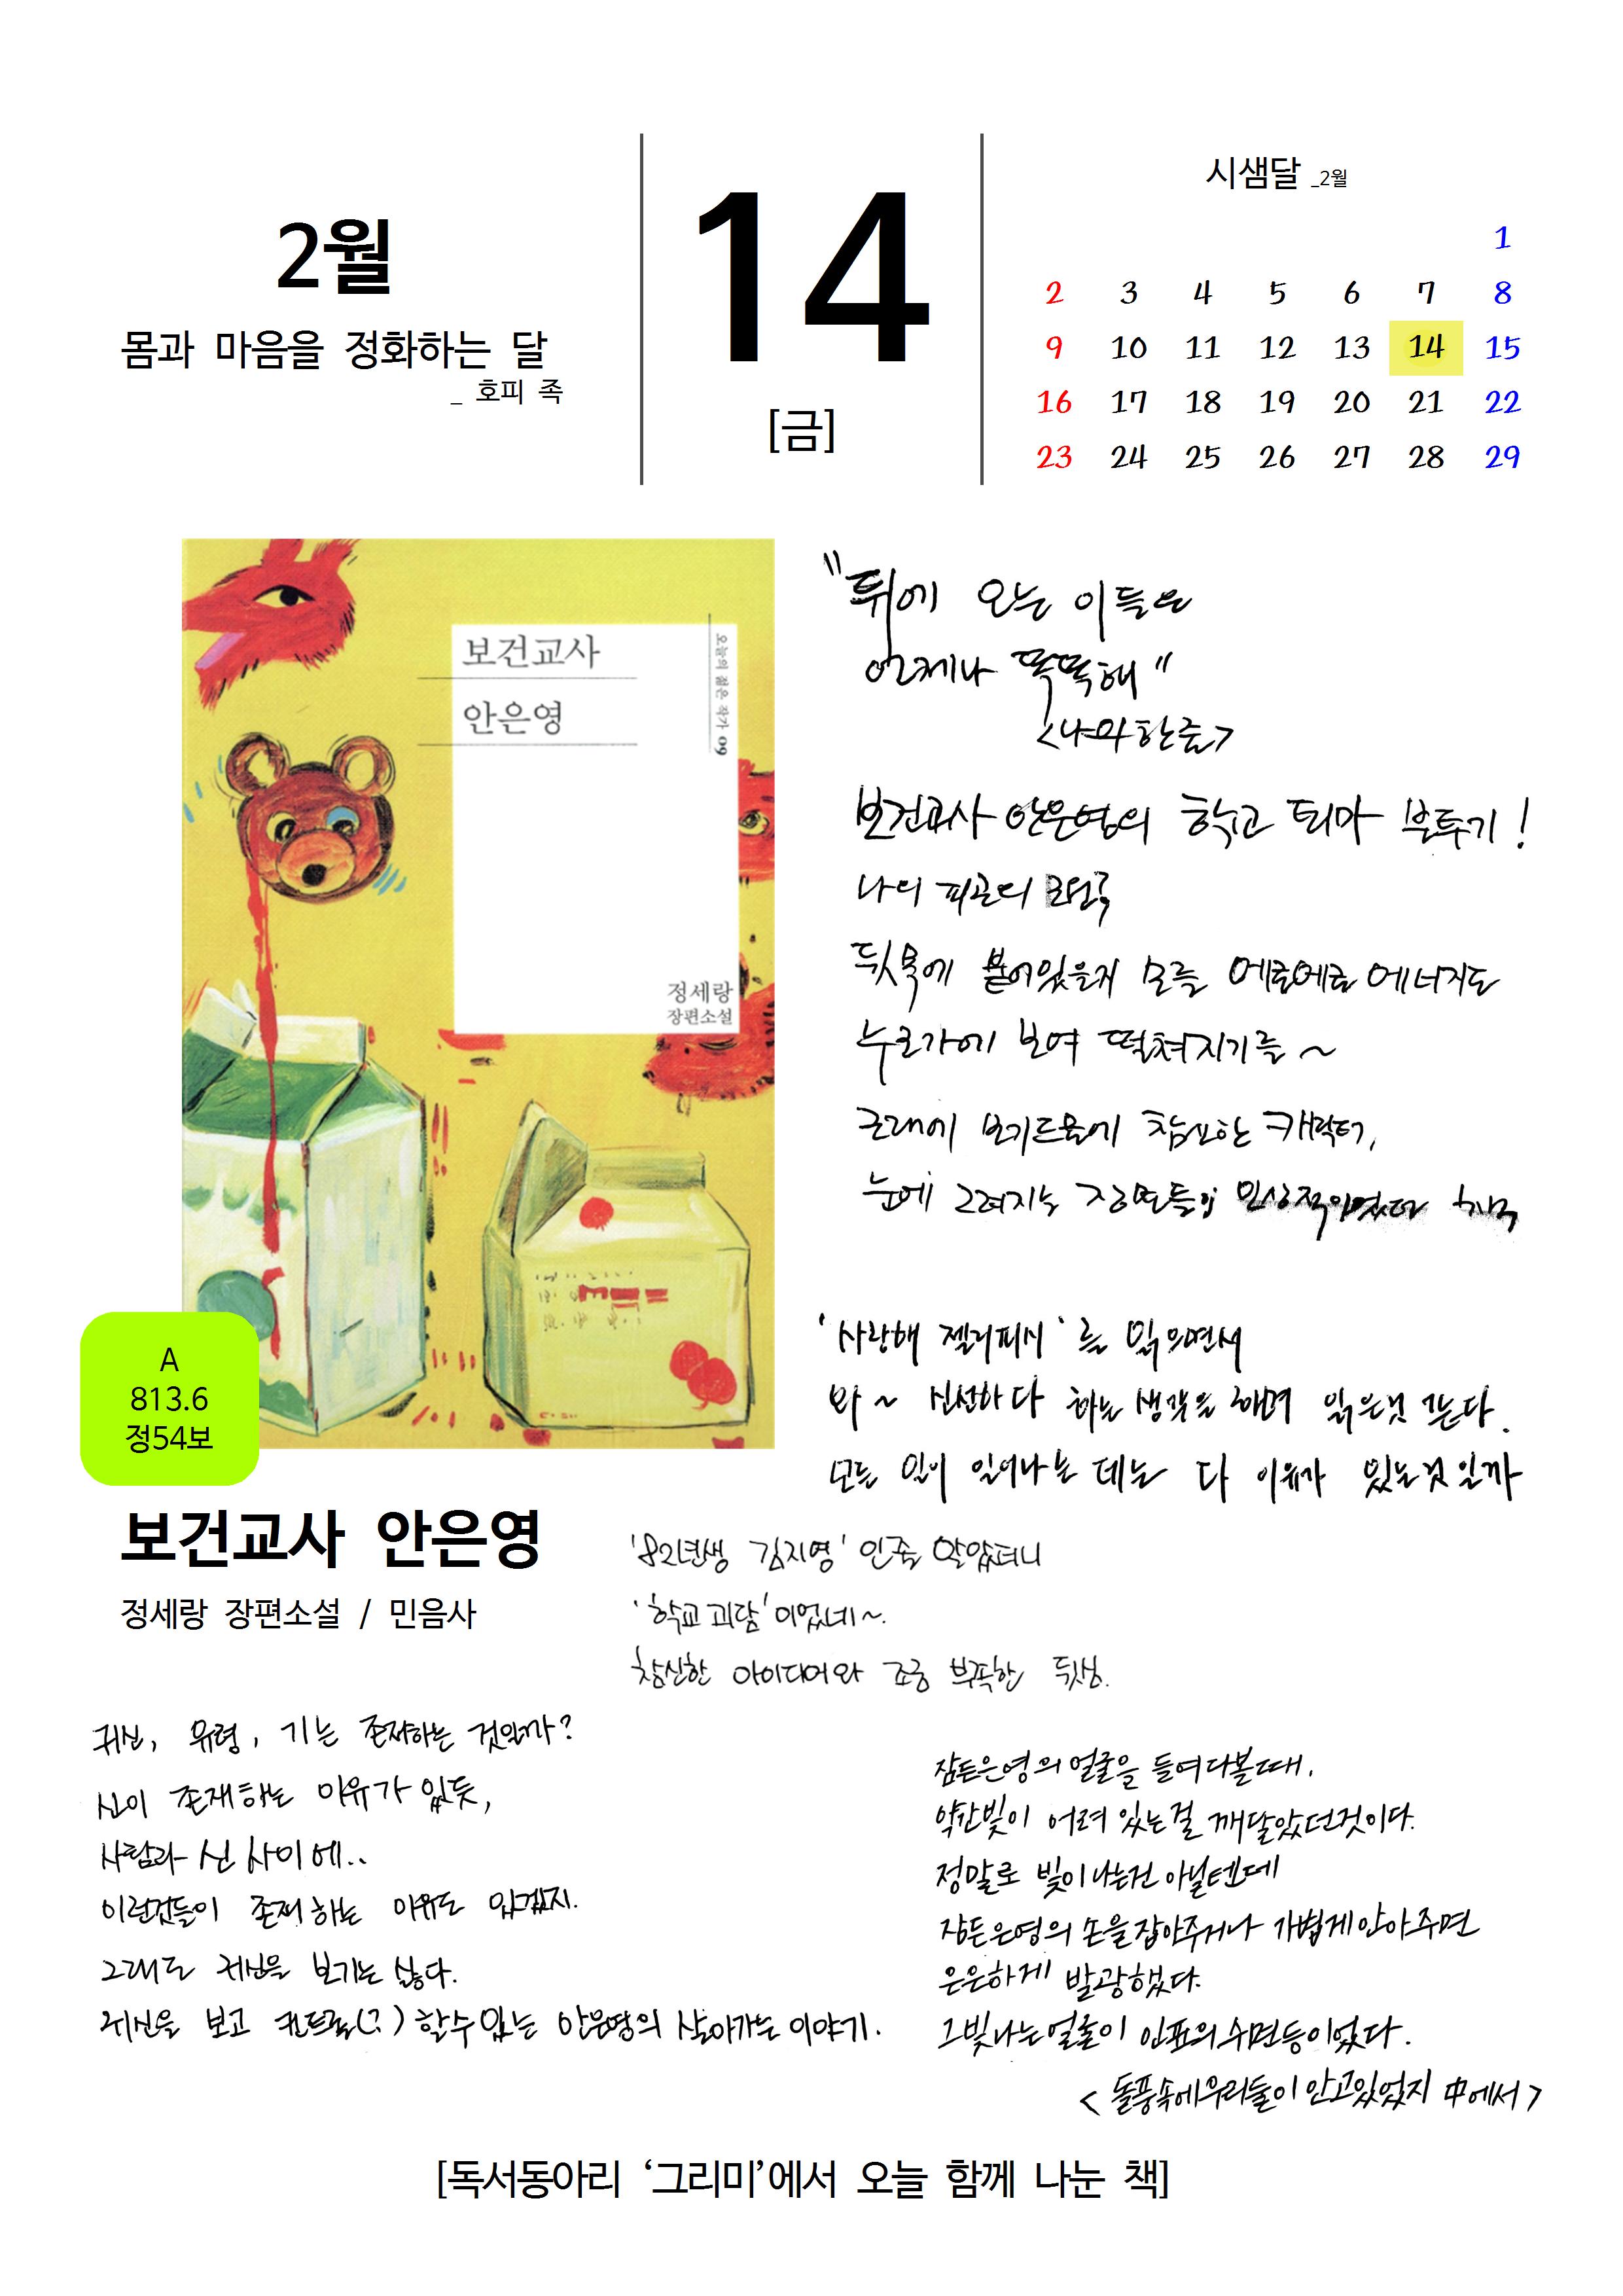 2월
몸과 마음을 정화하는 달
_ 호피 족
14
[금]
시샘달 _2월
1
2 3 4 5 6 7 8
9 10 11 12 13 14 15
16 17 18 19 20 21 22
23 24 25 26 27 28 29
보건교사
안은영
오늘의 젊은 작가 09
정세랑
장편소설
A
813.6
정54보
보건교사 안은영
정세랑 장편소설 / 민음사
"뒤에 오는 이들은
언제나 똑똑해"
<나와 한줄>
보건교사 안은영의 학교 퇴마 분투기!
나의 피곤의
뒷목에 붙어있을지 모를 에로에로 에너지도
누군가에 보여 떨쳐지기를 ~
근래에 보기드물에 참신한 캐릭터,
눈에 그려지는 장면들이 인상적이었던 책
'사랑해 젤리피시'를 읽으면서
와 ~ 신선하다 하는 생각을 하며 읽은것 같다.
모든 일이 일어나는 데는 다 이유가 있는것일까
'82년생 김지영'인줄 알았더니
'학교괴담'이었네~.
참신한 아이디어와 조금 부족한 뒷심.
귀신, 유령, 기는 존재하는 것일까?
신이 존재하는 이유가 있듯,
사람과 신 사이에..
이런것들이 존재하는 이유도 있겠지.
그래도 귀신을 보기는 싫다.
귀신을 보고 컨트롤(?) 할수있는 안은영의 살아가는 이야기.
잠든은영의 얼굴을 들여다볼때,
약간빛이 어려 있는걸 깨달았던것이다.
정말로 빛이나는건 아닐텐데
잠든은영의 손을잡아주거나 가볍게안아주면
은은하게 발광했다.
그빛나는얼굴이 인표의수면등이었다.
<돌풍속에우리둘이안고있었지 中에서>
[독서동아리 '그리미'에서 오늘 함께 나눈 책]